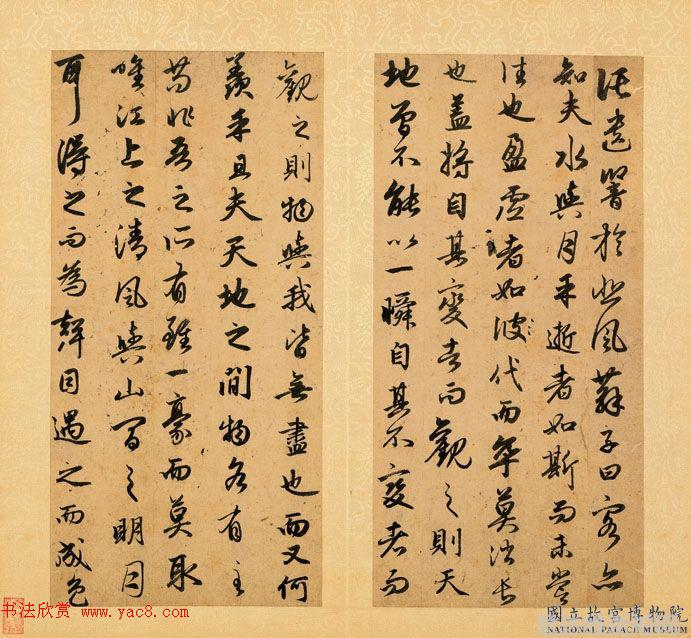 託遺響於悲風蘇子曰客亦
知夫水與月乎逝者如斯而未嘗
往也盈虛者如彼代而卒莫消長
也盖將自其變者而觀之則天
地曾不能以一瞬自其不變者而
觀之則物與我皆無盡也而又何
羨乎且夫天地之間物各有主
苟非吾之所有雖一豪而莫取
唯江上之清風與山間之明月
耳得之而為聲目遇之而成色
书法欣赏 www.yac8.com
國立故宮博物院
NATIONAL PALACE MUSEUM